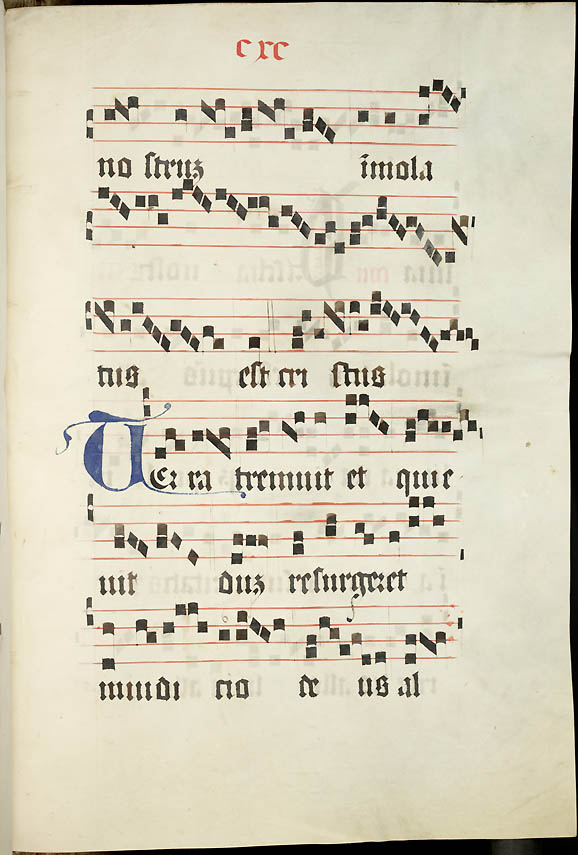 cxc
no struz īmola
tus est cri stus
TEr ra tremuit et quie
uit duz resurgeret
in iudi cio de us al